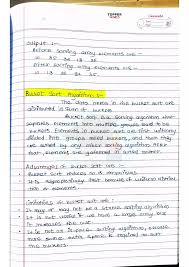 TOPPER
output :-
Before sorting array elements are -
After sorting array elements are -
Bucket Sort Algorithm :-
The data items in the bucket sort are
distributed in form of buckets.
Bucket sort is a sorting algorithm that
separate elements into multiple groups said to be
buckets. Elements in bucket sort are first uniformly
divided into groups called buckets, and then they
are sorted by any other sorting algorithm. After
that, elements are gathered in sorted manner.
Advantages of bucket sort are :-
Bucket sort reduces no. of comparisons.
It is asymptotically fast because of uniform distribu
tion of elements.
Limitations of bucket sort are :-
It may or may not be a stable sorting algorithm
It is not useful if we have a large array bec
it increases the cost.
It is not an in-place sorting algorithm, because
some extra space is required to sort
the buckets.